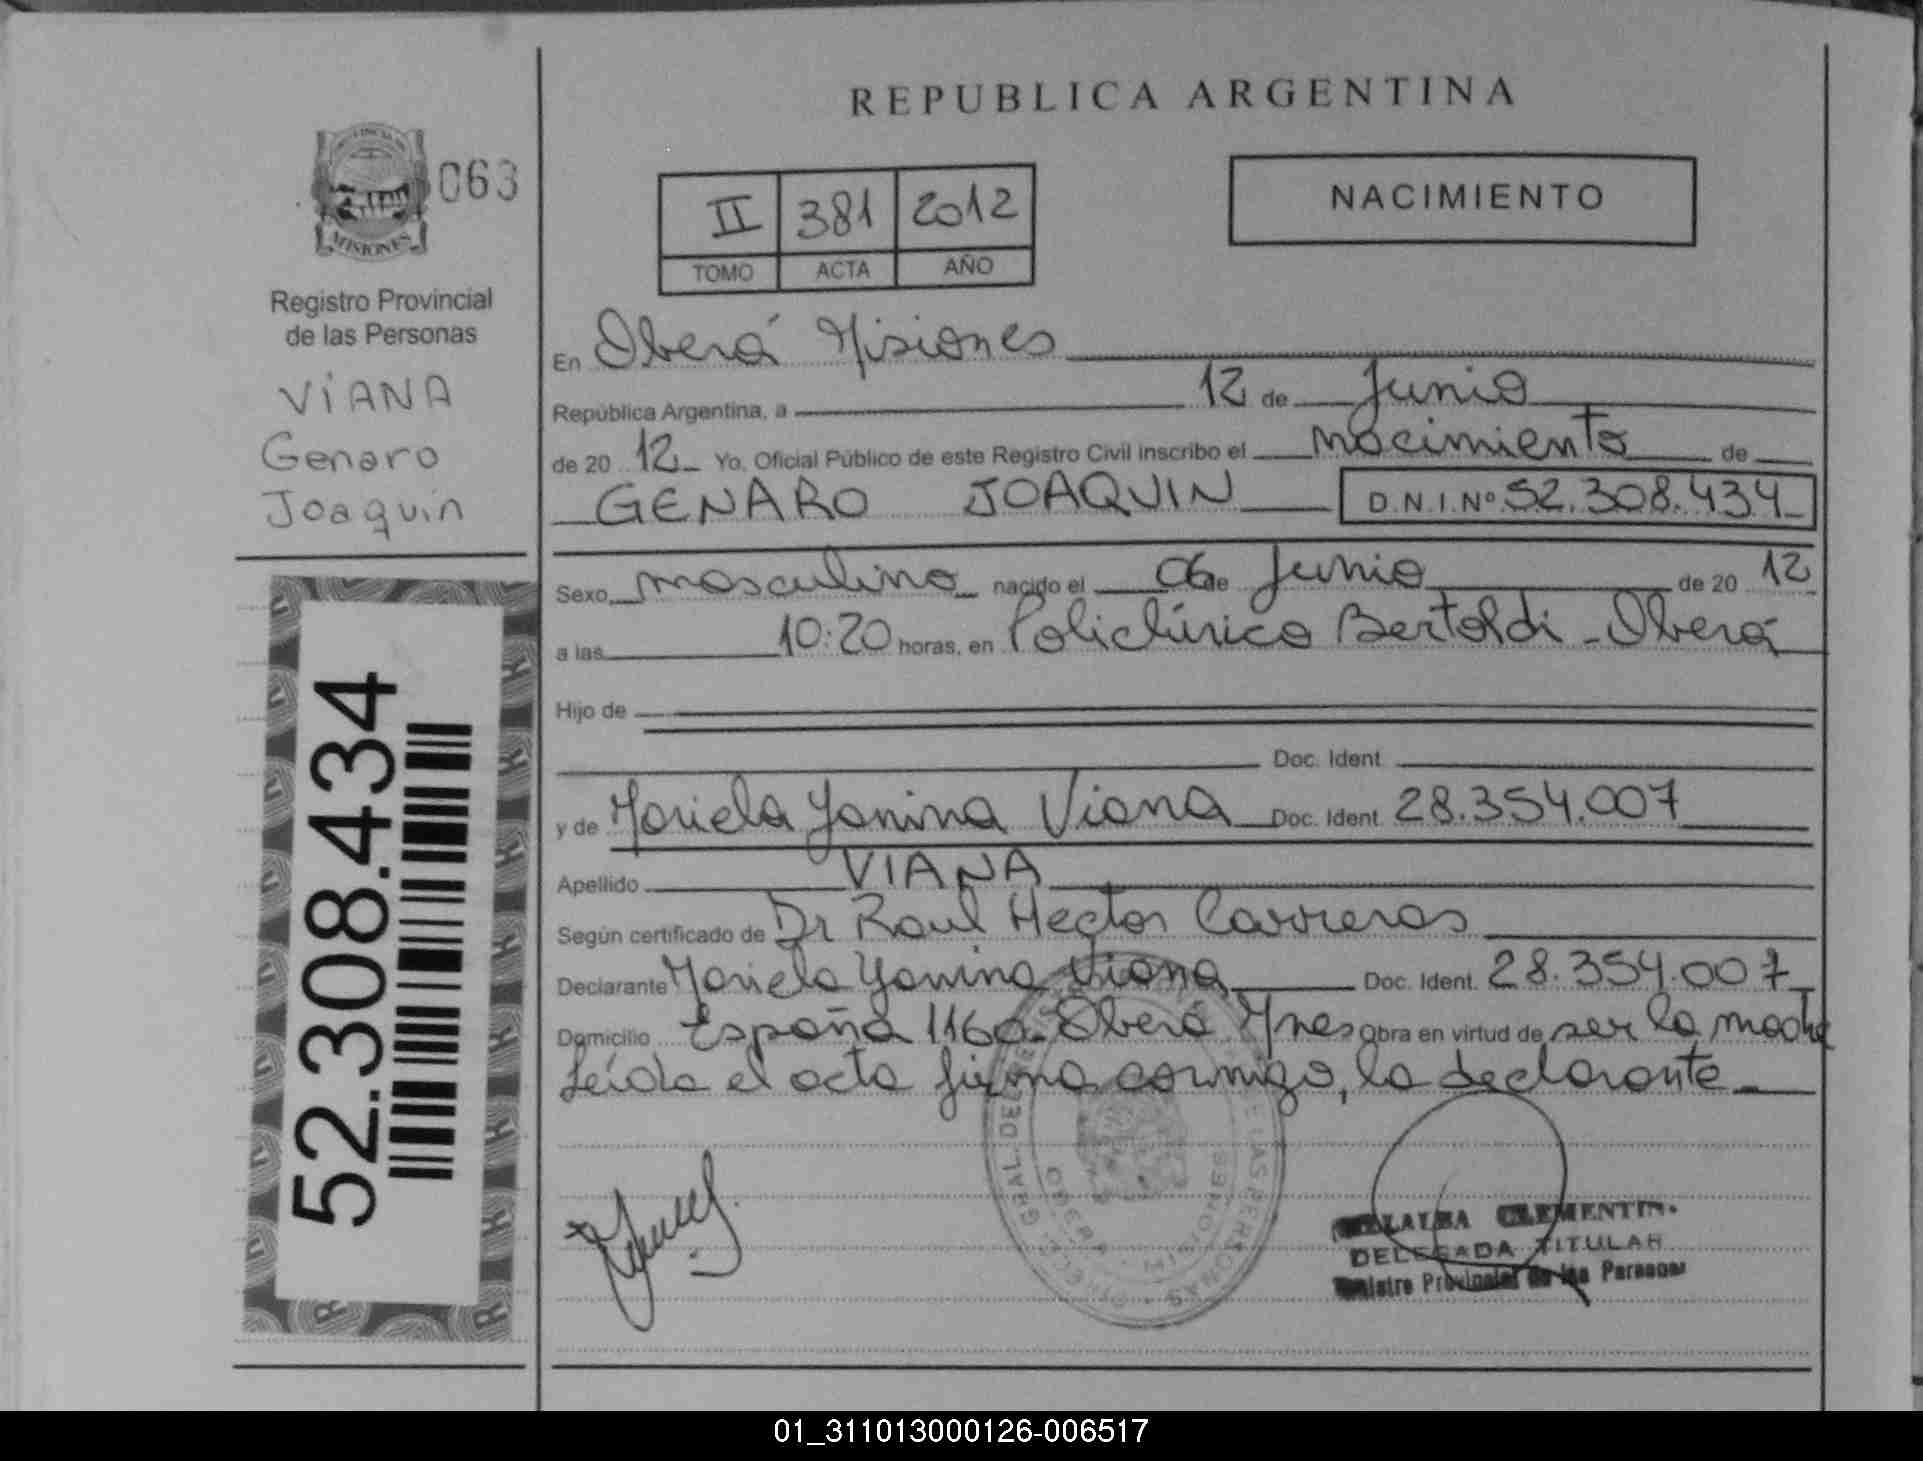 REPUBLICA ARGENTINA
063
MISIONES
Registro Provincial
de las Personas
VIANA
Genaro
Joaquín
52.308.434
II 381 2012
TOMO ACTA AÑO
NACIMIENTO
En Oberá Misiones
República Argentina, a 12 de Junio
de 20 12 Yo, Oficial Público de este Registro Civil inscribo el nacimiento de
GENARO JOAQUIN D.N.I.Nº 52.308.434
Sexo masculino nacido el 06 de Junio de 20 12
a las 10:20 horas, en Policlínico Bertoldi - Oberá
Hijo de
Doc. Ident.
y de Mariela Yanina Viana Doc. Ident. 28.354.007
Apellido VIANA
Según certificado de Dr Raul Hector Carreras
Declarante Mariela Yanina Viana Doc. Ident. 28.354.007
Domicilio España 1160. Oberá Mnes Obra en virtud de ser la madre
Leída el acta firma conmigo, la declarante
OBERA - MISIONES
CLEMENTIN
DELEGADA TITULAR
Registro Provincial de las Personas
01_311013000126-006517